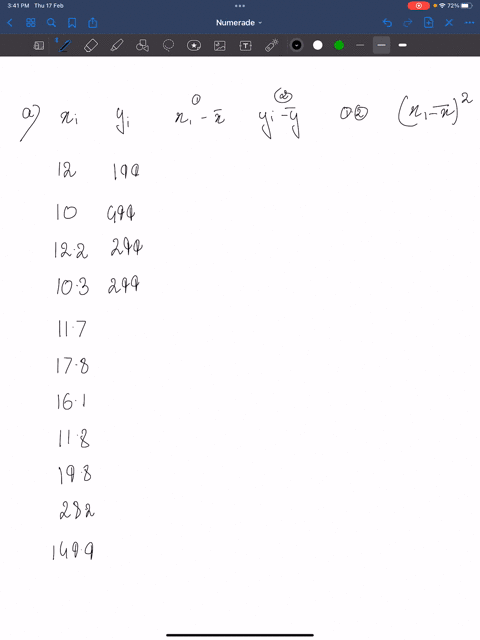 3:41 PM Thu 17 Feb 72%
Numerade
a) xi yi xi - x̄ ① yi - ȳ ② ①② (xi - x̄)²
12 199
10 499
12.2 299
10.3 299
11.7
17.8
16.1
11.8
19.8
28.2
149.9